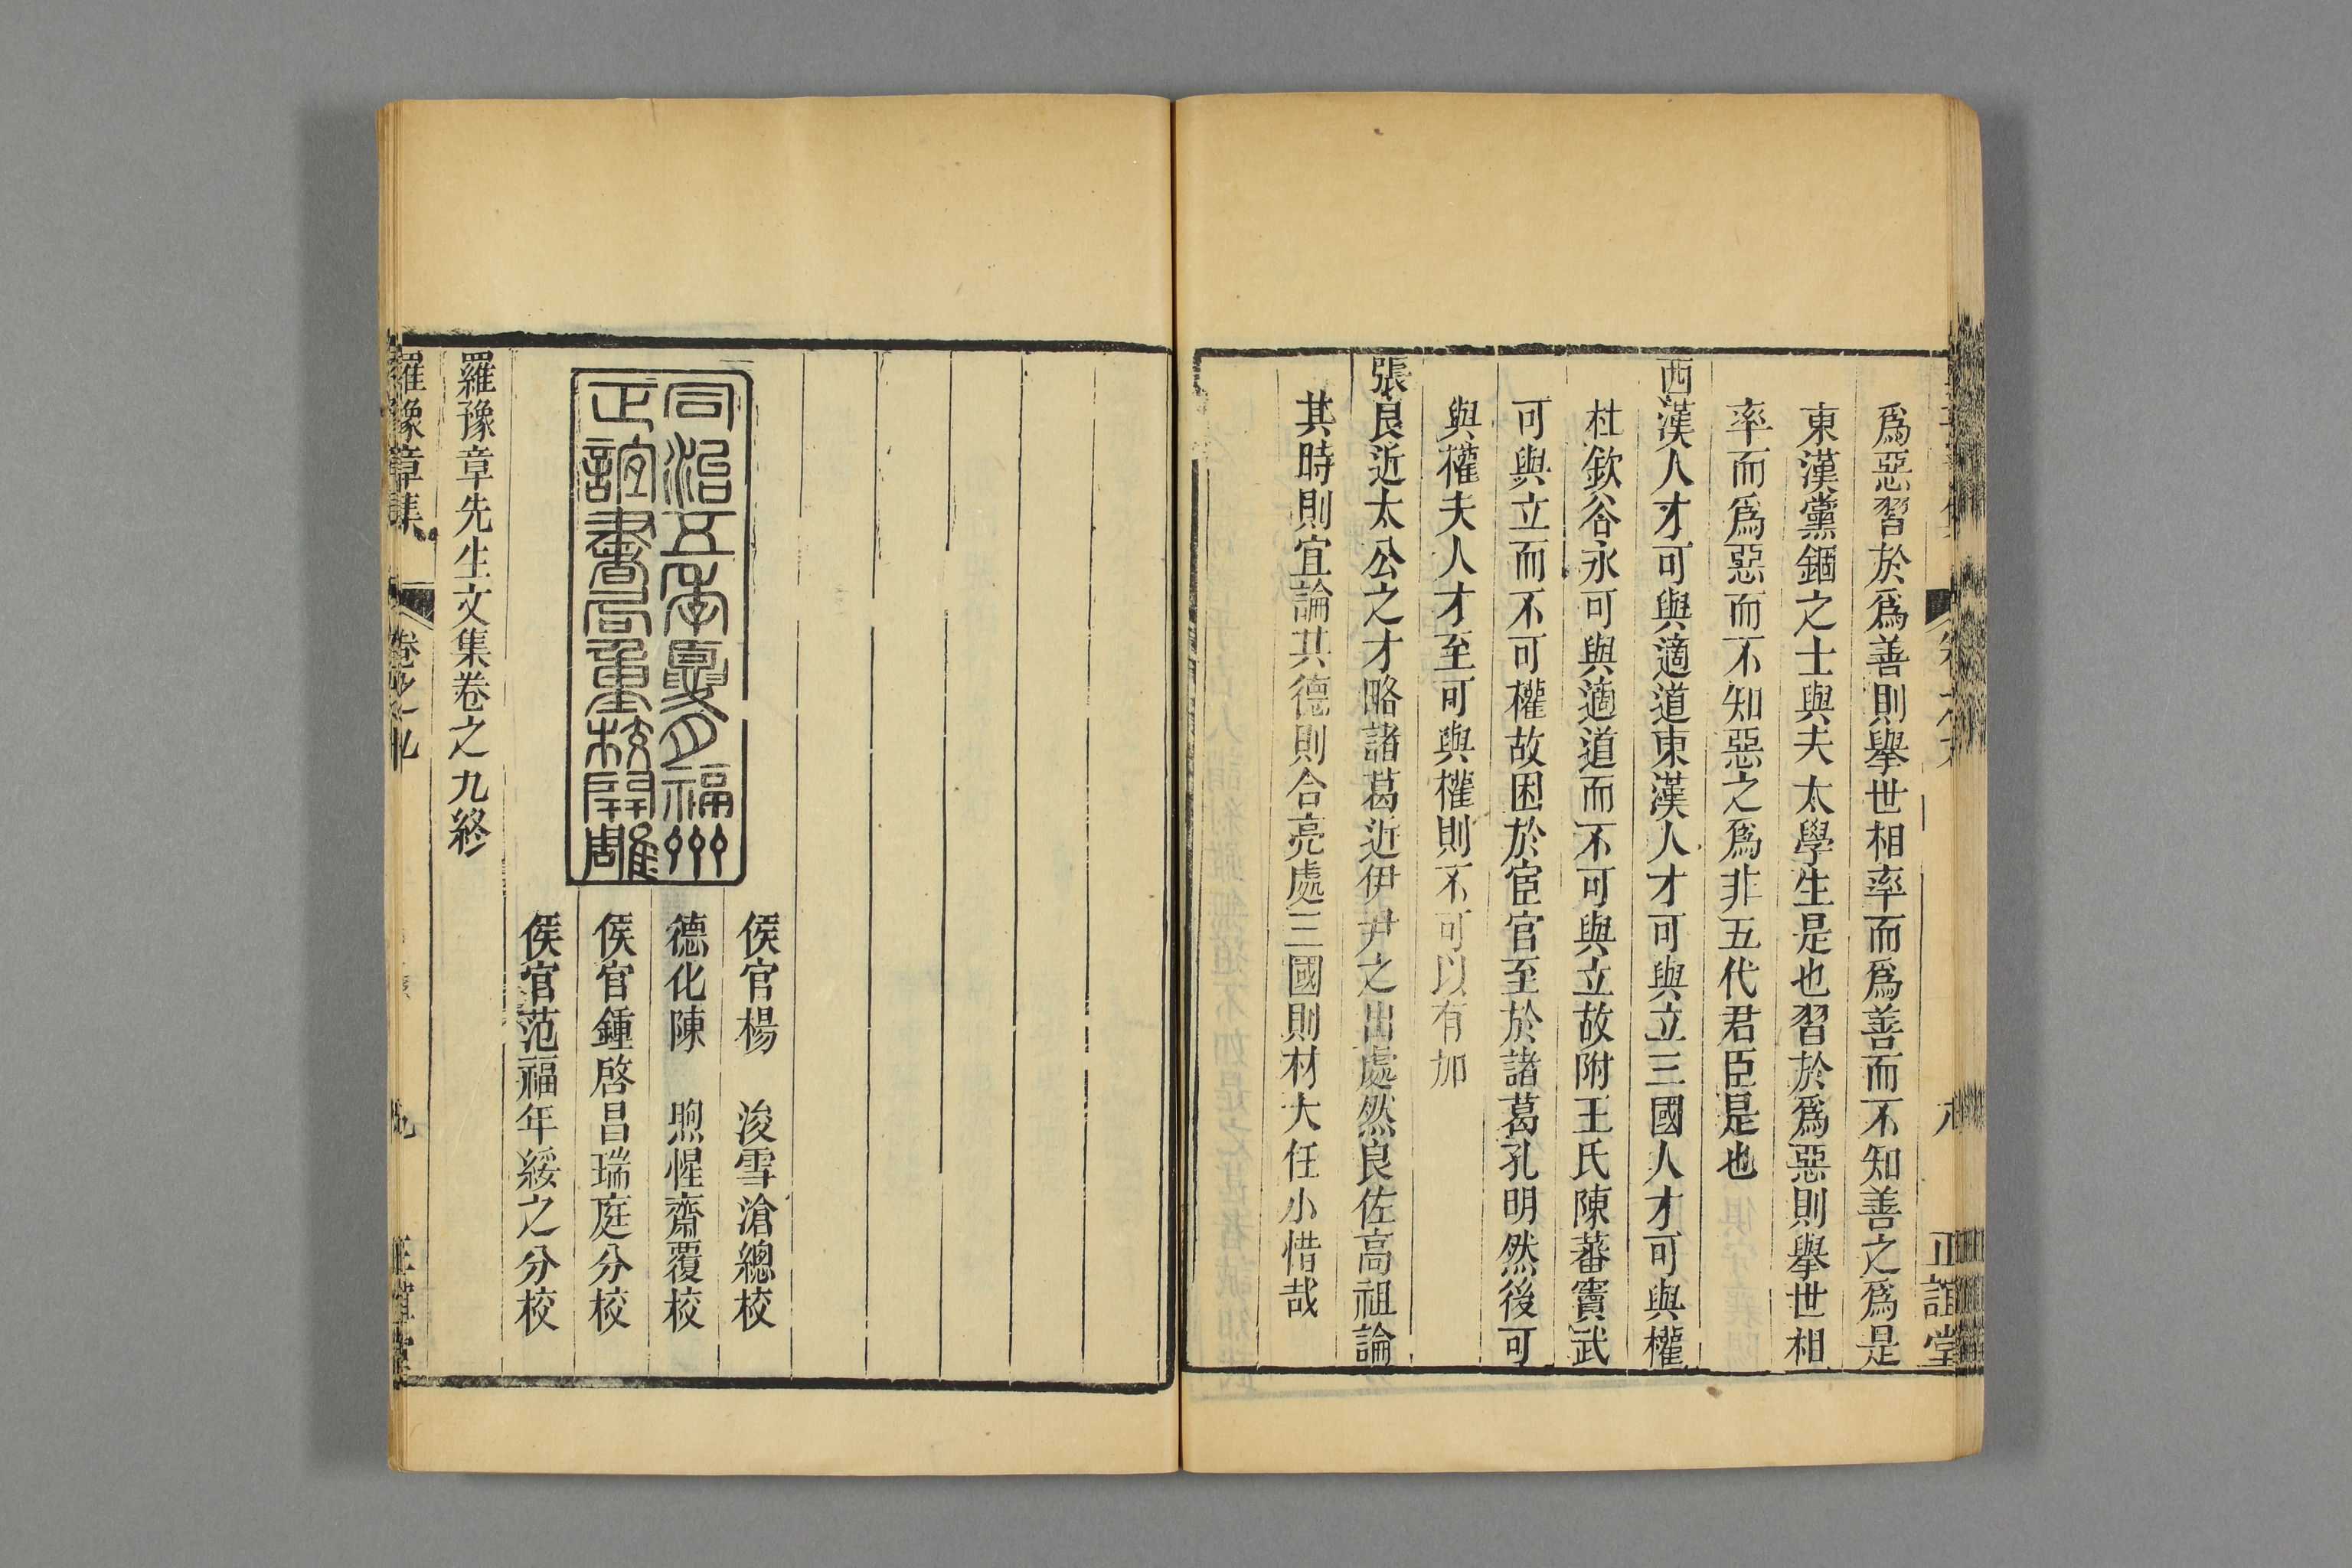 正誼堂
爲惡習於爲善則舉世相率而爲善而不知善之爲是
東漢黨錮之士與夫太學生是也習於爲惡則舉世相
率而爲惡而不知惡之爲非五代君臣是也
西漢人才可與適道東漢人才可與立三國人才可與權
杜欽谷永可與適道而不可與立故附王氏陳蕃竇武
可與立而不可權故困於宦官至於諸葛孔明然後可
與權夫人才至可與權則不可以有加
張良近太公之才略諸葛近伊尹之出處然良佐高祖論
其時則宜論其德則合亮處三國則材大任小惜哉
侯官楊　浚雪滄總校
德化陳　煦惺齋覆校
侯官鍾啓昌瑞庭分校
侯官范福年綏之分校
同治五年夏月福州
正誼書局重校開雕
羅豫章先生文集卷之九終
羅豫章集　卷之九　九　正誼堂